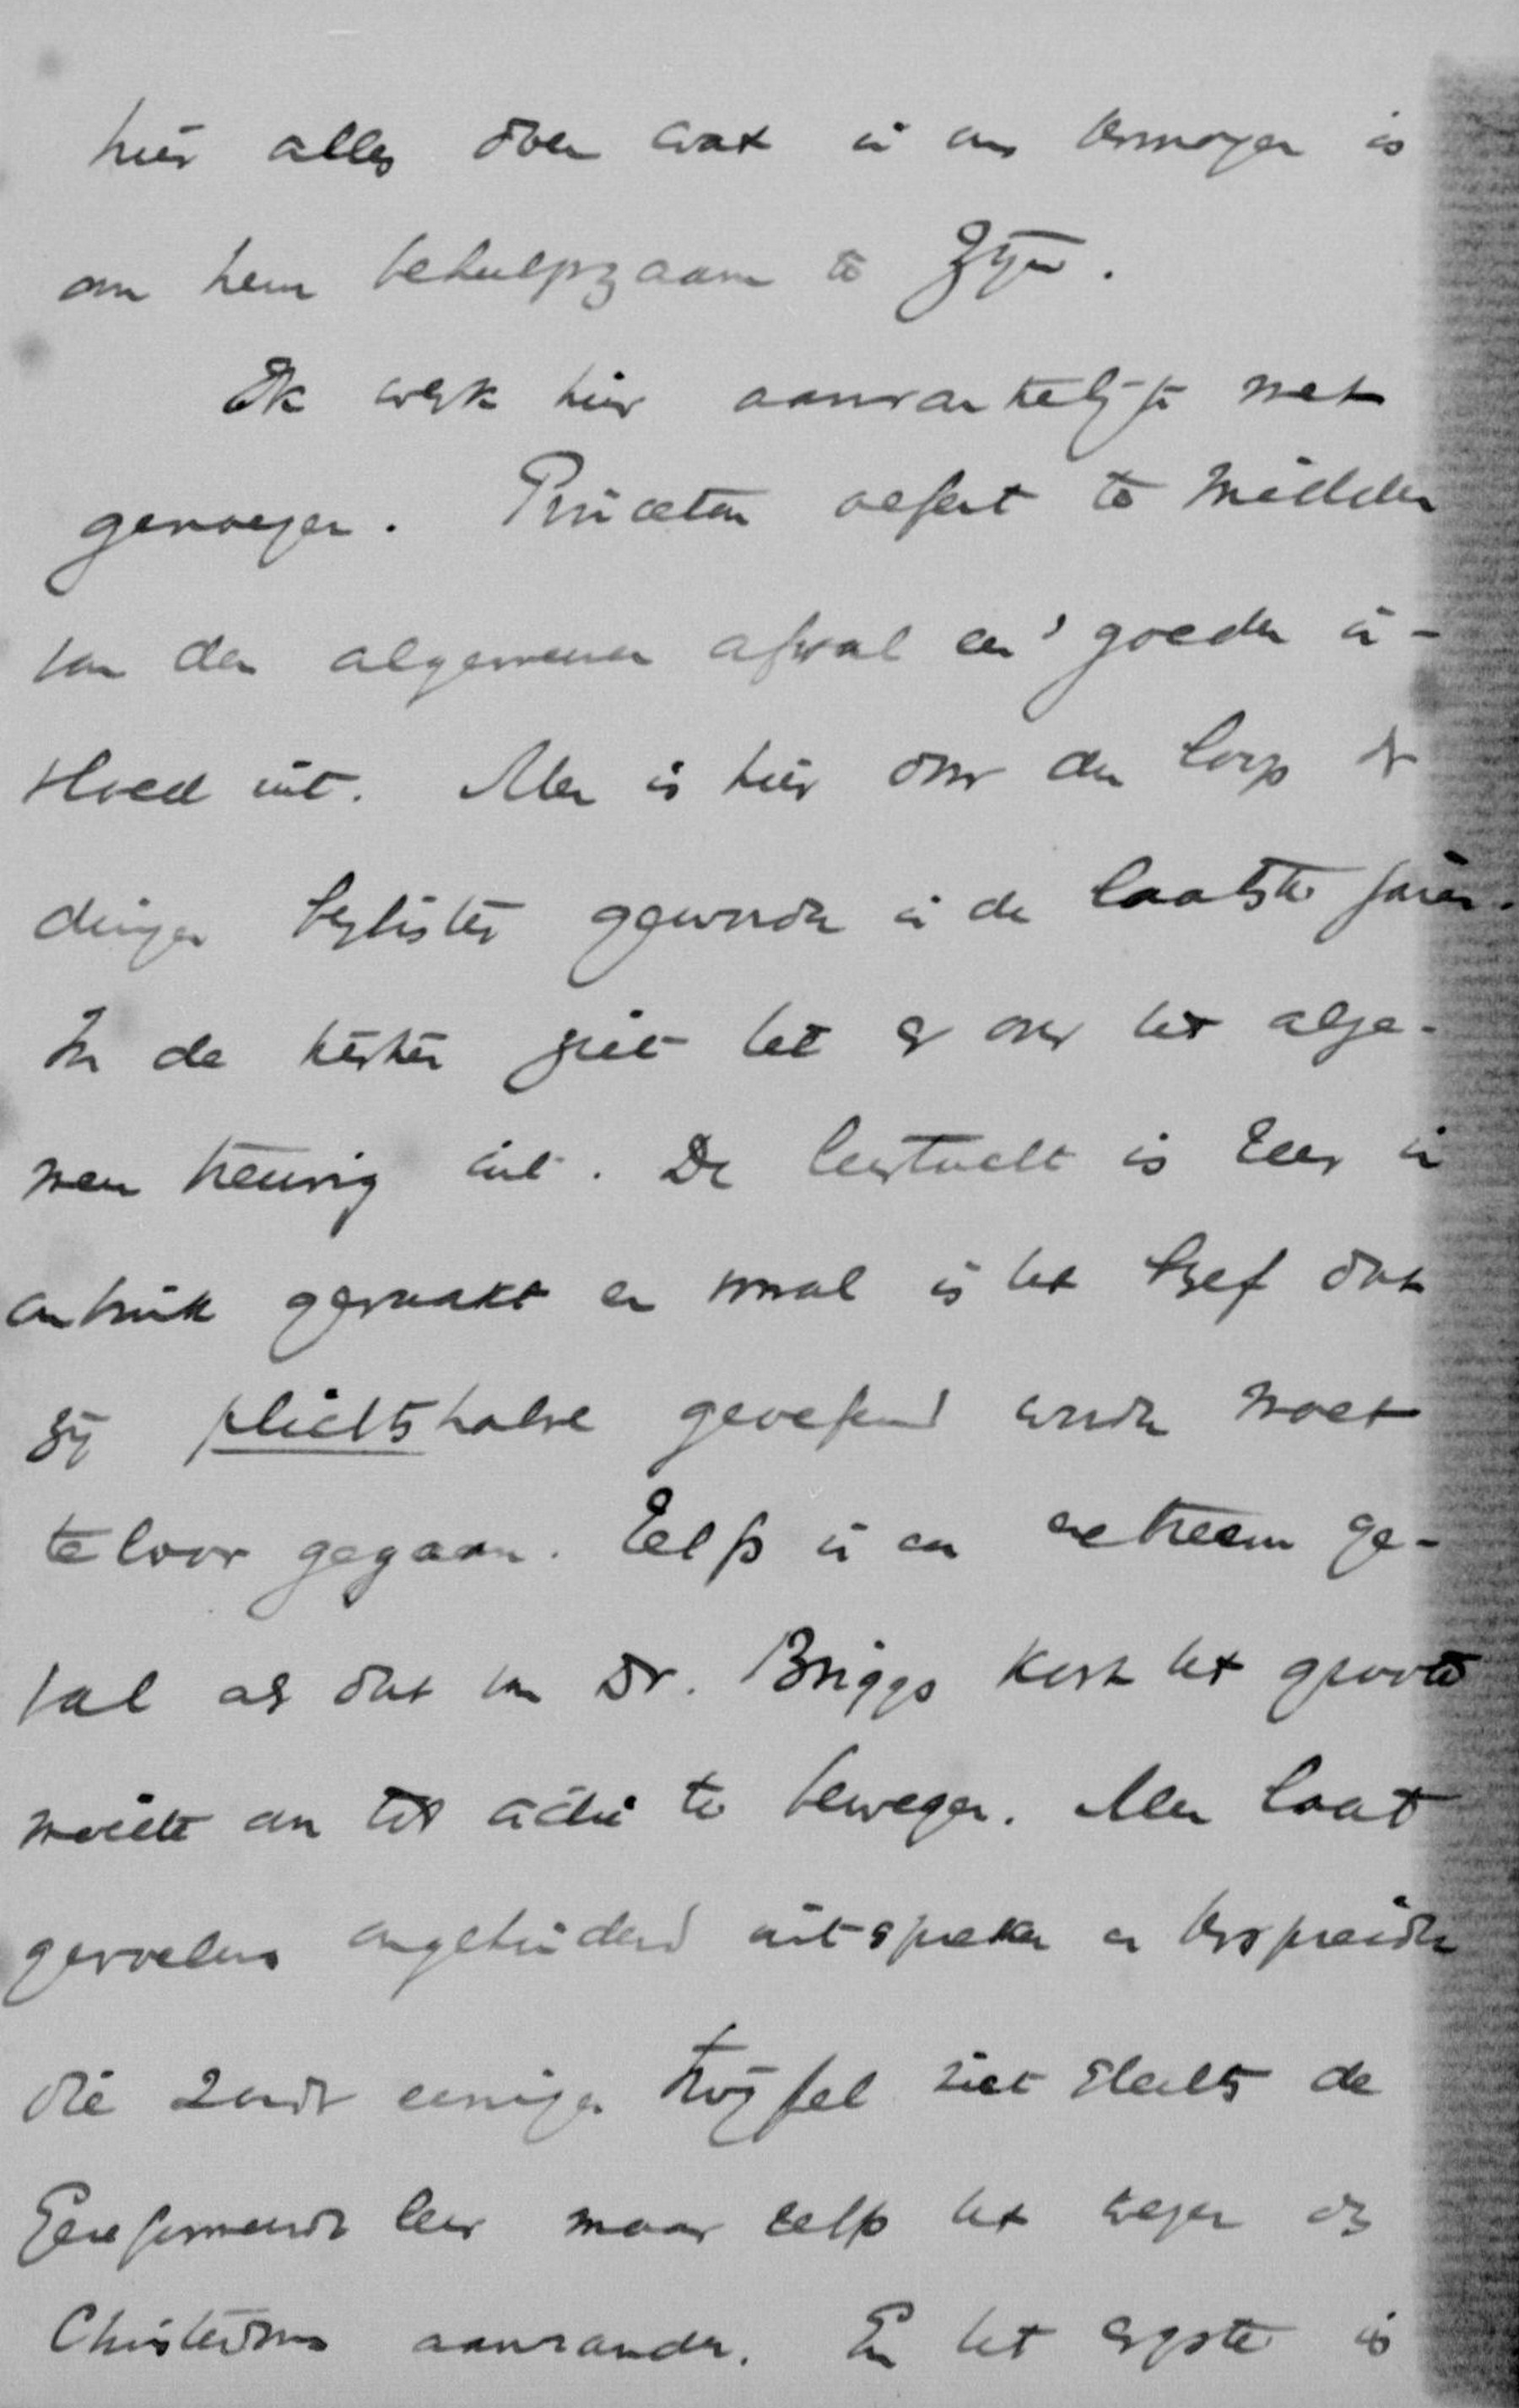 hier alles doen wat in ons vermogen is
om hem behulpzaam te zijn.
Ik werk hier aanvankelijk met
genoegen. Princeton oefent te midden
van den algemeenen afval een' goeden in-
vloed uit. Men is hier door den loop der
dingen beslister geworden in de laatste jaren.
In de kerken ziet het er over het alge-
meen treurig uit. De leertucht is zeer in
onbruik geraakt en vooral is het besef dat
zij plichtshalve geoefend worden moet
teloor gegaan. Zelfs in een extreem ge-
val als dat van Dr. Briggs kost het groote
moeite om tot actie te bewegen. Men laat
gevoelens ongehinderd uitspreken en verspreiden
die zonder eenigen twijfel niet slechts de
Gereformeerde leer maar zelfs het wezen des
Christendoms aanranden. En het ergste is